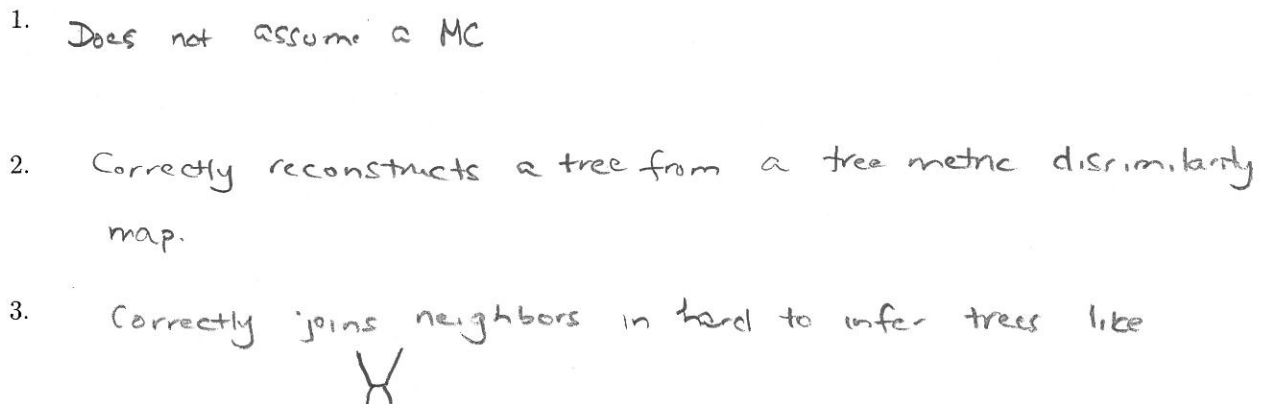 1. Does not assume a MC
2. Correctly reconstructs a tree from a tree metric dissimilarity
map.
3. Correctly joins neighbors in hard to infer trees like